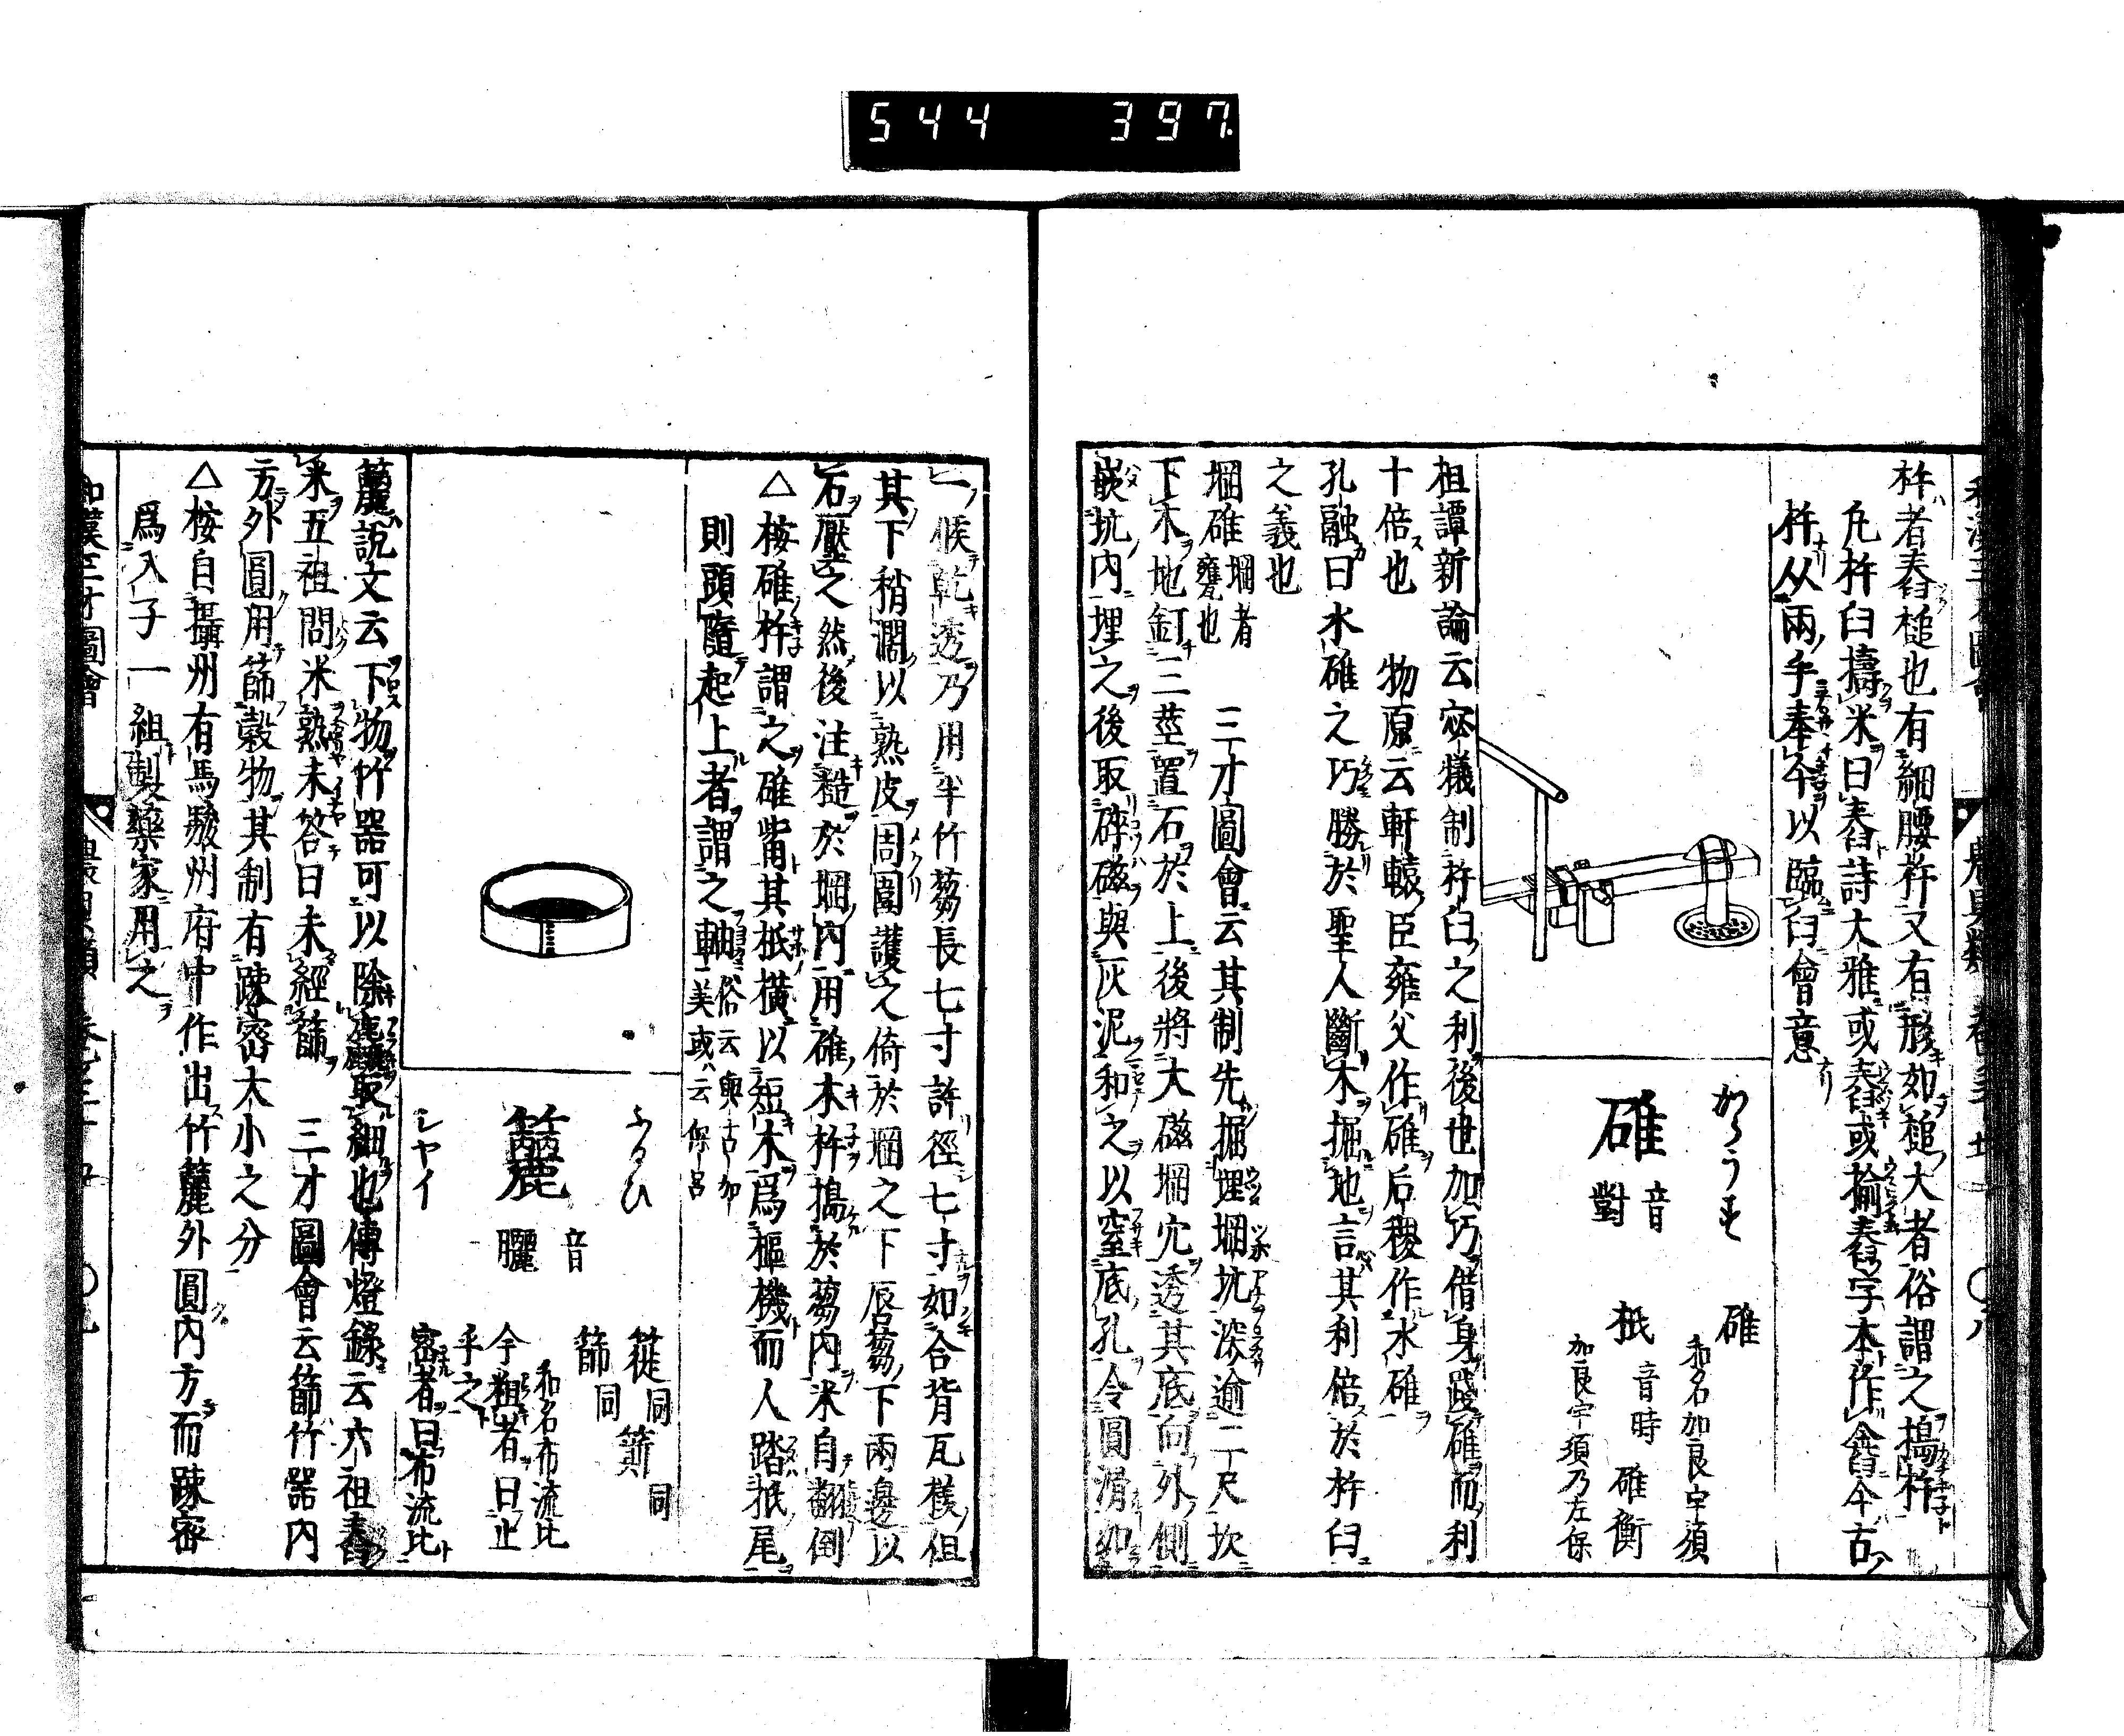 544 397
杵者舂槌也有細腰杵又有形如槌大者俗謂之搗杵
凡杵臼擣米曰舂詩大雅或舂或揄舂字本作𦥽今古
杵从兩手奉午以臨臼會意
からうす
碓
音對
碓
和名加良宇須
碓衡
音時
加良宇須乃左保
桓譚新論云宓犧制杵臼之利後世加巧借身踐碓而利
十倍也 物原云軒轅臣雍父作碓后稷作水碓
孔融曰水碓之巧勝於聖人斷木掘地言其利倍於杵臼
之義也
堈碓 堈者甕也 三才圖會云其制先掘埋堈坑深逾二尺次
下木地釘三莖置石於上後將大磁堈穴透其底向外側
嵌坑内埋之後取碎磁與灰泥和之以窒底孔令圓滑如
一候乾透乃用半竹篘長七寸許徑七寸如合背瓦樣但
其下稍濶以熟皮周圍護之倚於堈之下唇篘下兩邊以
石壓之然後注糙於堈内用碓木杵搗於篘内米自翻倒
△按碓杵謂之碓觜其柢横以短木爲樞機而人踏柢尾
則頭隨起上者謂之軸 俗云與古加美或云保呂
ふるひ
簏
音
シヤイ
篩同
和名布流比
今粗者曰止
乎之
密者曰布流比
簏說文云下物竹器可以除麄取細也傳燈錄云六祖舂
米五祖問米熟未答曰未經篩 三才圖會云篩竹器内
方外圓用篩穀物其制有疎密大小之分
△按自攝州有馬駿州府中作出竹簏外圓内方而疎密
爲入子一組製藥家用之
和漢三才圖會